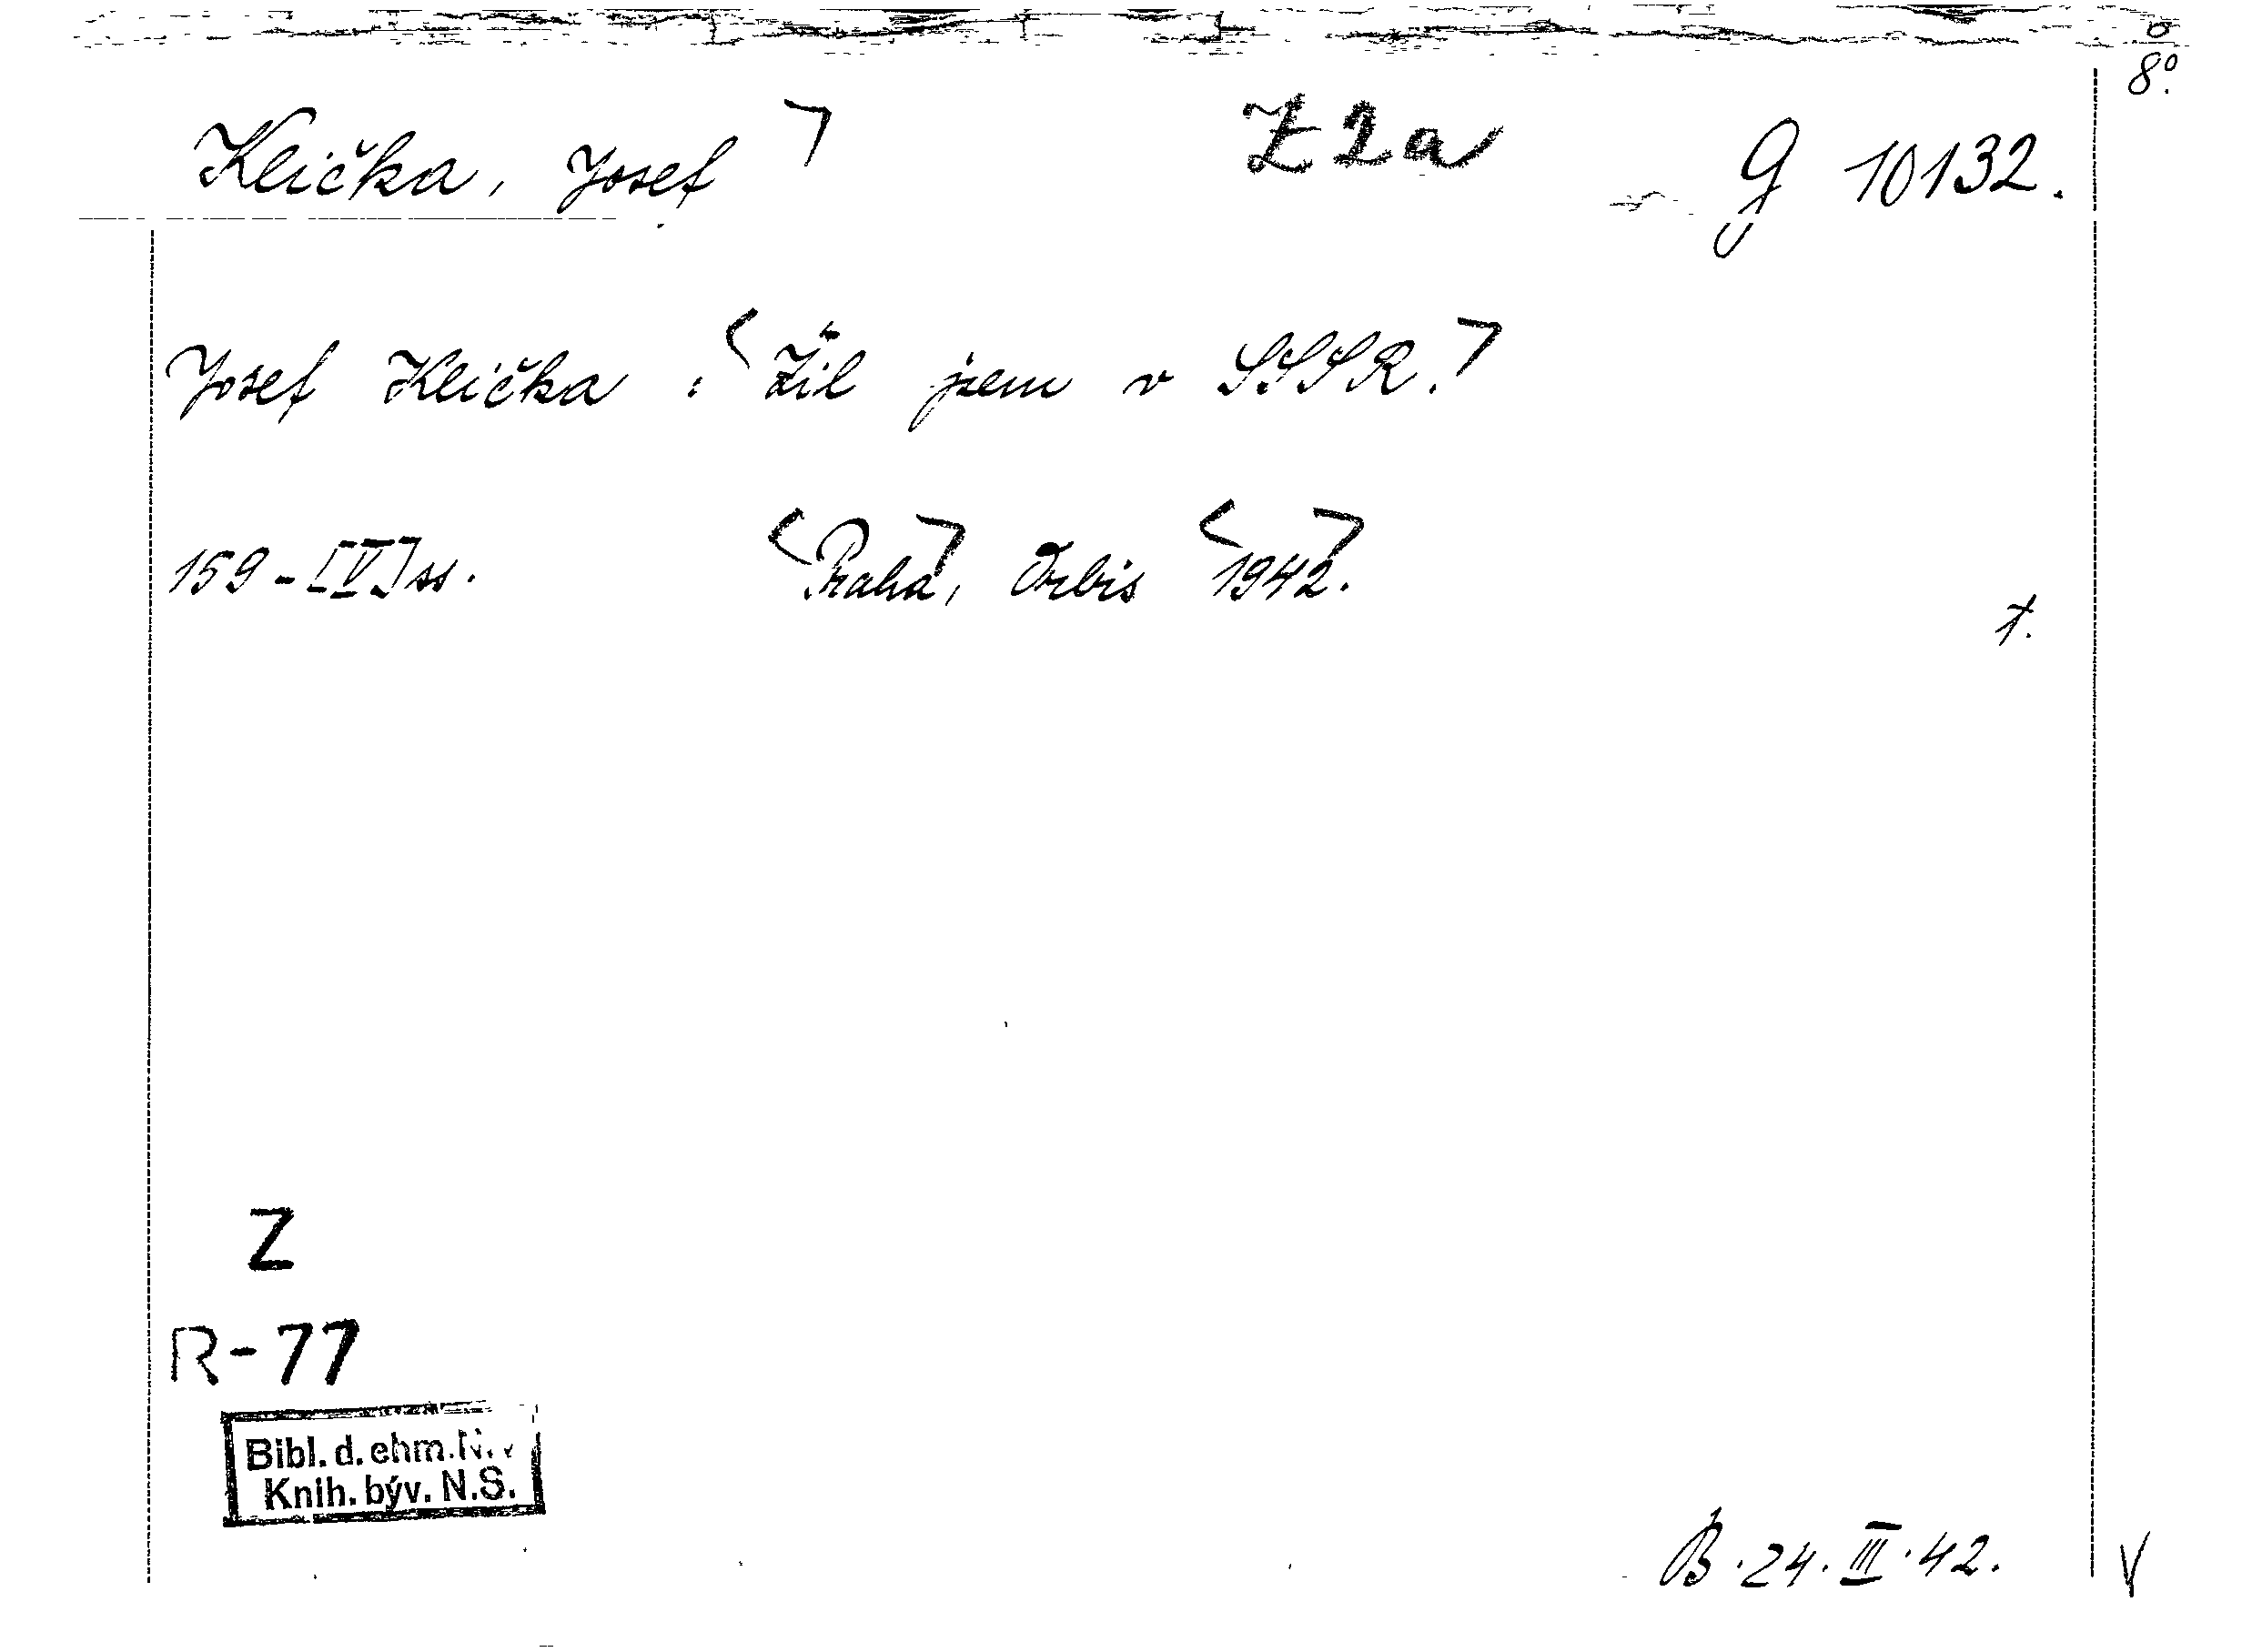 8°.
Klička, Josef > Z 2a G 10132.
Josef Klička : <Žil jsem v SSSR.>
159-[V] ss. <Praha>, Orbis <1942>.
1.
Z
R-77
Bibl. d. ehm. N.
Knih. býv. N.S.
B. 24. III. 42. V